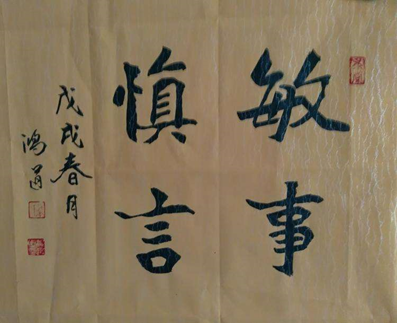 敏事
慎言
戊戌春月
鸿道